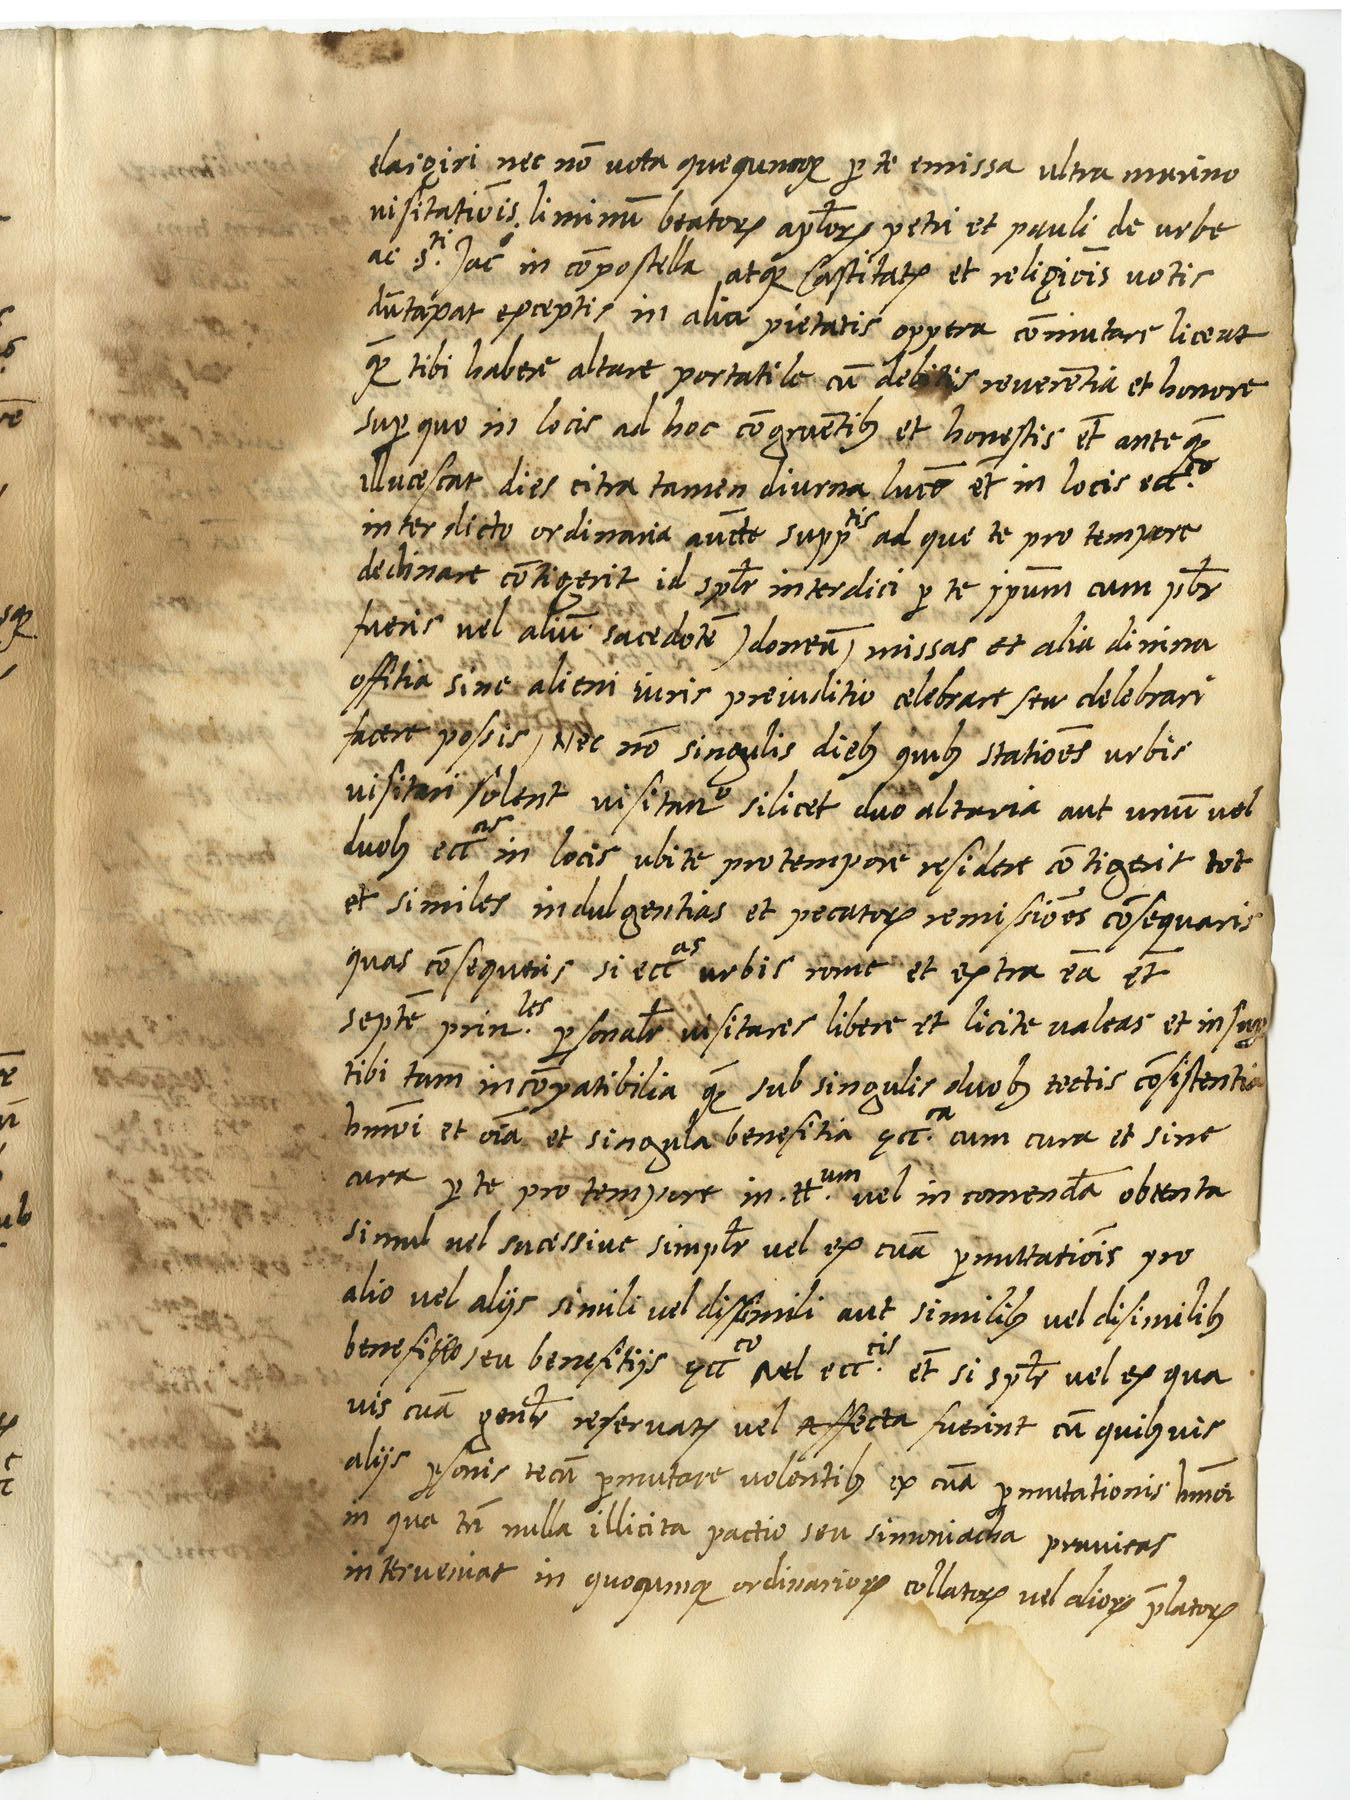 elaigiri nec nō uota quequnqꝫ ꝑ te emissa ultra marino
uisitatiōis liminū beatoꝝ apl̄oꝝ petri et pauli de urbe
ac .s.ti Jac̄o in cōpostella atqꝫ Castitatꝫ et religiōis uotis
dūtaxat exceptis in alia pietatis oppera cōmutare liceat
qꝫ tibi habere altare portatile cū debitis reuerētia et honore
suꝑ quo in locis ad hoc cōgruētibꝫ et honestis et̄ ante qꝫ
illucescat dies citra tamen diurnā lucē et̄ in locis ecc.co
interdicto ordinaria aucte supptis ad que te pro tempore
declinare cōtigerit id spl̄r interdici ꝑ te ipsum cum pb̄r
fueris uel aliū sacedotē idoneū missas et alia diuina
offitia sine alieni iuris preiuditio celebrare seu celebrari
facere possis Nec nō singulis diebꝫ quibꝫ statiōes urbis
uisitari solent uisitan̄o silicet duo altaria aut unū uel
duobꝫ ecc̄as in locis ubi te pro tempore residere cōtigerit tot
et similes indulgentias et pecatoꝝ remissiōes cōsequaris
quas cōsequeris si ecc̄as urbis rome et extra eā et̄
septē prin.les ꝑsonal̄r uisitares libere et licite ualeas et insuꝑ
tibi tam incōpatibilia qꝫ sub singulis duobꝫ tectis cōsistentia
hmōi et oīa et singula benefitia ęcc.ca cum cura et sine
cura ꝑ te pro tempore in .tt.um uel in comendā obtenta
simul uel sucessiue simpl̄r uel ex cuā ꝑmuttatiōis pro
alio uel alijs simili uel dissimili aut similibꝫ uel disimilibꝫ
benefitio seu benefitijs ęccco uel ecc.cis et̄ si spl̄r uel ex qua
uis cuā genl̄r reseruatꝫ uel affecta fuerint cū quibꝫuis
alijs ꝑsonis tecū ꝑmutare uolentibꝫ ex cuā ꝑmutationis hmōi
in qua tn̄ nulla illicita pactio seu simoniacha prauitas
interueniat in quoqumqꝫ ordinarioꝝ collatoꝝ uel alioꝝ p̄latoꝝ